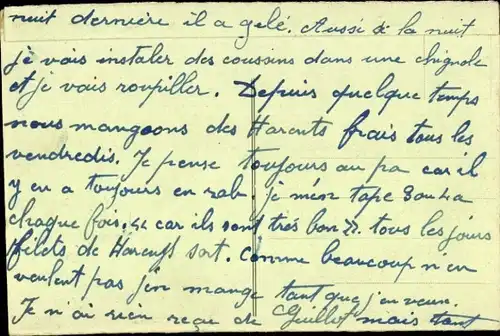 nuit dernière il a gelé. Aussi à la nuit
je vais instaler des coussins dans une chignole
et je vais roupiller. Depuis quelque temps
nous mangeons des Harents frais tous les
vendredis. Je pense toujours au pa car il
y en a toujours en rab. je m'en tape 3 ou 4
chaque fois. "car ils sont très bon". tous les jours
filets de Harengs sort. Comme beaucoup n'en
veulent pas j'en mange tant que j'en veux.
Je n'ai rien reçu de Guillot mais tant